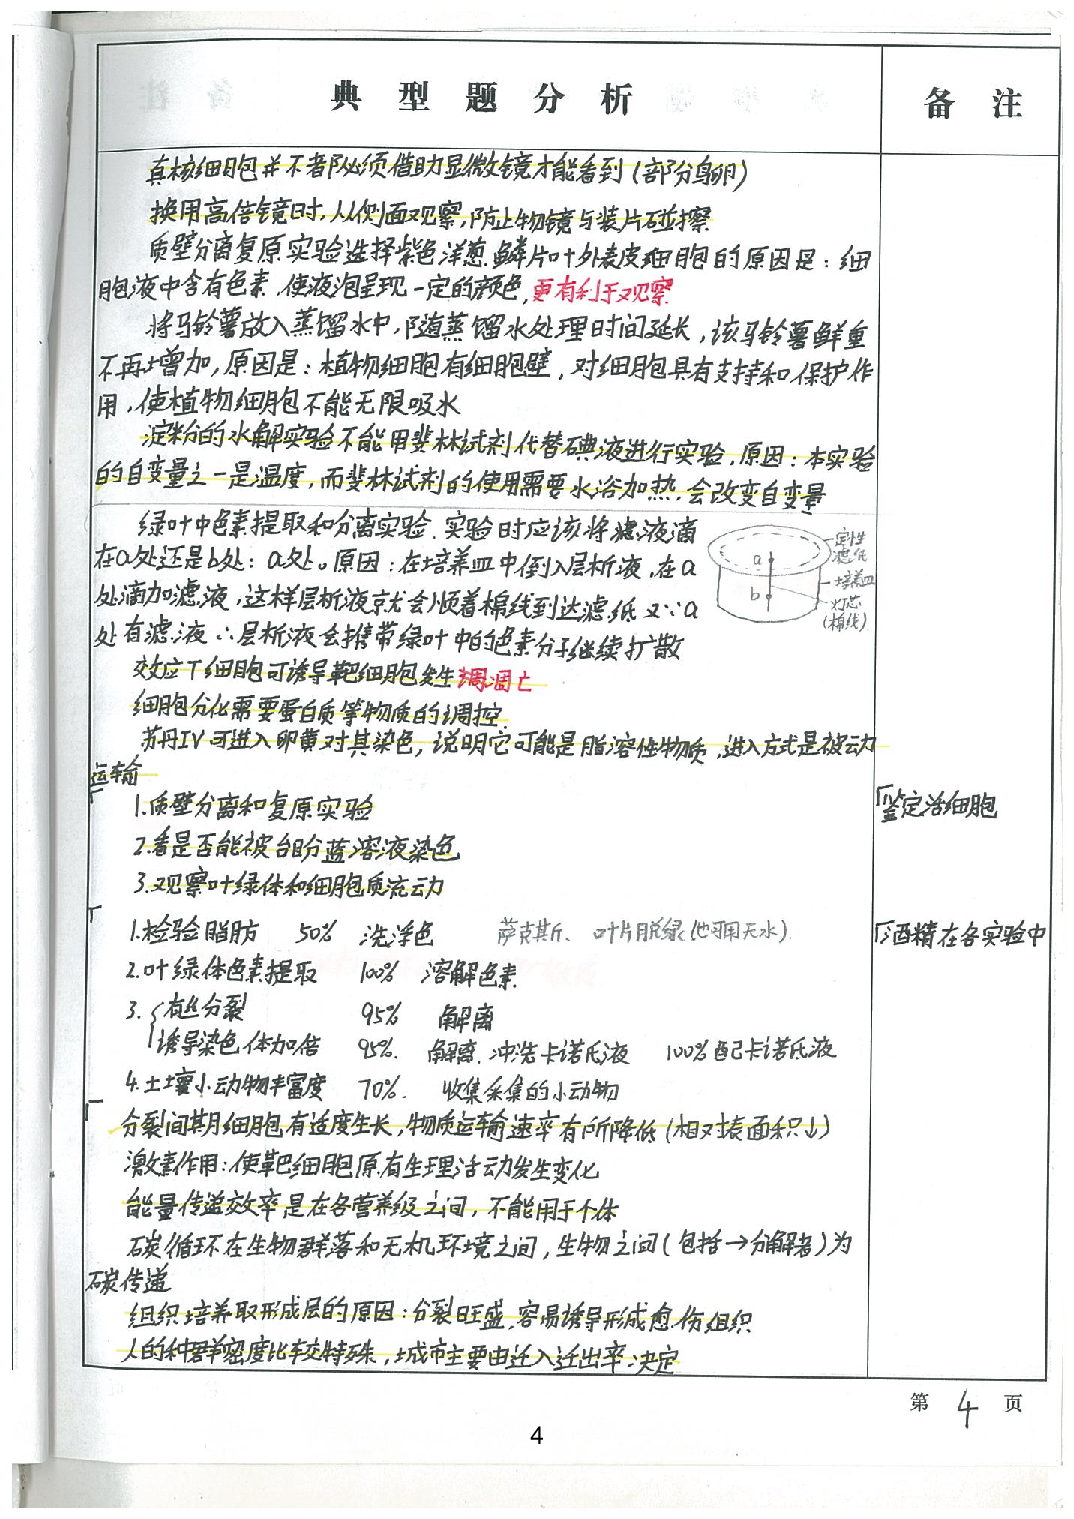 典型题分析
备注
真核细胞并不都必须借助显微镜才能看到(部分鸟卵)
换用高倍镜时,从侧面观察,防止物镜与装片碰擦
质壁分离复原实验选择紫色洋葱鳞片叶外表皮细胞的原因是:细
胞液中含有色素,使液泡呈现一定的颜色,更有利于观察
将马铃薯放入蒸馏水中,随蒸馏水处理时间延长,该马铃薯鲜重
不再增加,原因是:植物细胞有细胞壁,对细胞具有支持和保护作
用,使植物细胞不能无限吸水
淀粉的水解实验不能用斐林试剂代替碘液进行实验,原因:本实验
的自变量之一是温度,而斐林试剂的使用需要水浴加热.会改变自变量
绿叶中色素提取和分离实验.实验时应该将滤液滴
在a处还是b处:a处。原因:在培养皿中倒入层析液,在a
处滴加滤液,这样层析液就会顺着棉线到达滤纸 又∵a
处有滤液∴层析液会携带绿叶中的色素分子继续扩散
a
b
定性
滤纸
培养皿
灯芯
(棉线)
效应T细胞可诱导靶细胞发生凋亡
细胞分化需要蛋白质等物质的调控.
苏丹IV可进入卵黄对其染色,说明它可能是脂溶性物质,进入方式是被动
运输
1.质壁分离和复原实验
鉴定活细胞
2.看是否能被台盼蓝溶液染色
3.观察叶绿体和细胞质流动
1.检验脂肪 50% 洗浮色 萨克斯、叶片脱绿(也可用无水)
酒精在各实验中
2.叶绿体色素提取 100% 溶解色素
3.{有丝分裂 95% 解离
诱导染色体加倍 95%. 解离.冲洗卡诺氏液 100%配卡诺氏液
4.土壤小动物丰富度 70%. 收集采集的小动物
分裂间期细胞有适度生长,物质运输速率有所降低(相对表面积↓)
激素作用:使靶细胞原有生理活动发生变化
能量传递效率是在各营养级之间,不能用于个体
碳循环在生物群落和无机环境之间,生物之间(包括→分解者)为
碳传递
组织培养取形成层的原因:分裂旺盛,容易诱导形成愈伤组织
人的种群密度比较特殊,城市主要由迁入迁出率决定
第 4 页
4